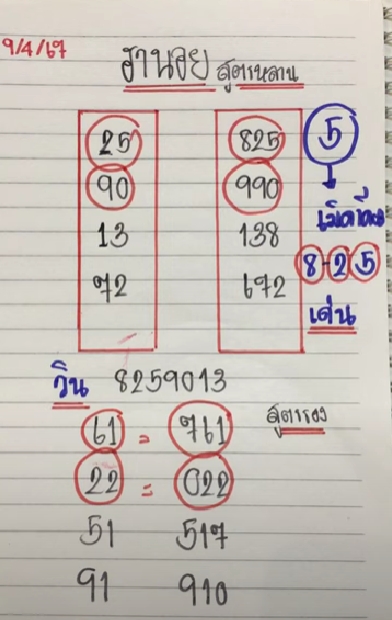 9/4/67
ฮานอย สูตรหลาน
25 825 5
90 990 เม็ดเดียว
13 138 8-2-5
72 672 เด่น
วิน 8259013
61 = 761 สูตรรอง
22 = 022
51 517
91 910